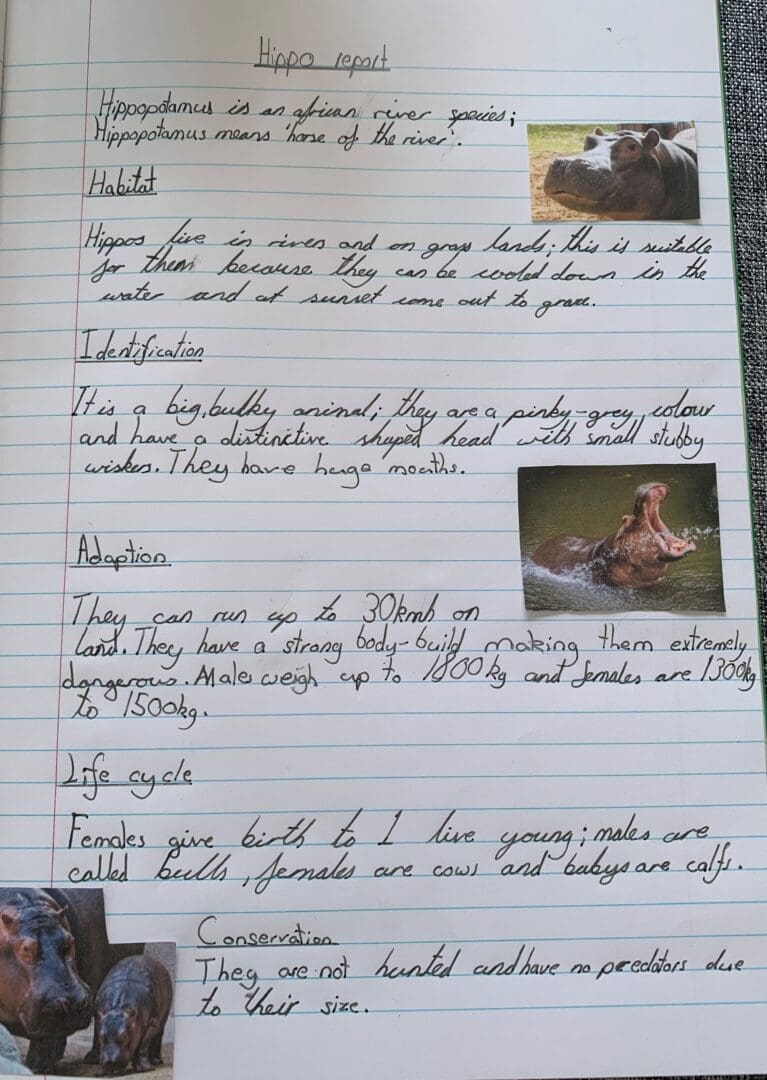 Hippo report
Hippopotamus is an african river species;
Hippopotamus means 'horse of the river'.
Habitat
Hippos live in rivers and on grass lands; this is suitable
for them because they can be cooled down in the
water and at sunset come out to graze.
Identification
It is a big, bulky animal; they are a pinky-grey colour
and have a distinctive shaped head with small stubby
wiskers. They have huge mouths.
Adaption
They can run up to 30kmh on
land. They have a strong body-build making them extremely
dangerous. Males weigh up to 1800kg and females are 1300kg
to 1500kg.
Life cycle
Females give birth to 1 live young; males are
called bulls, females are cows and babys are calfs.
Conservation
They are not hunted and have no predators due
to their size.